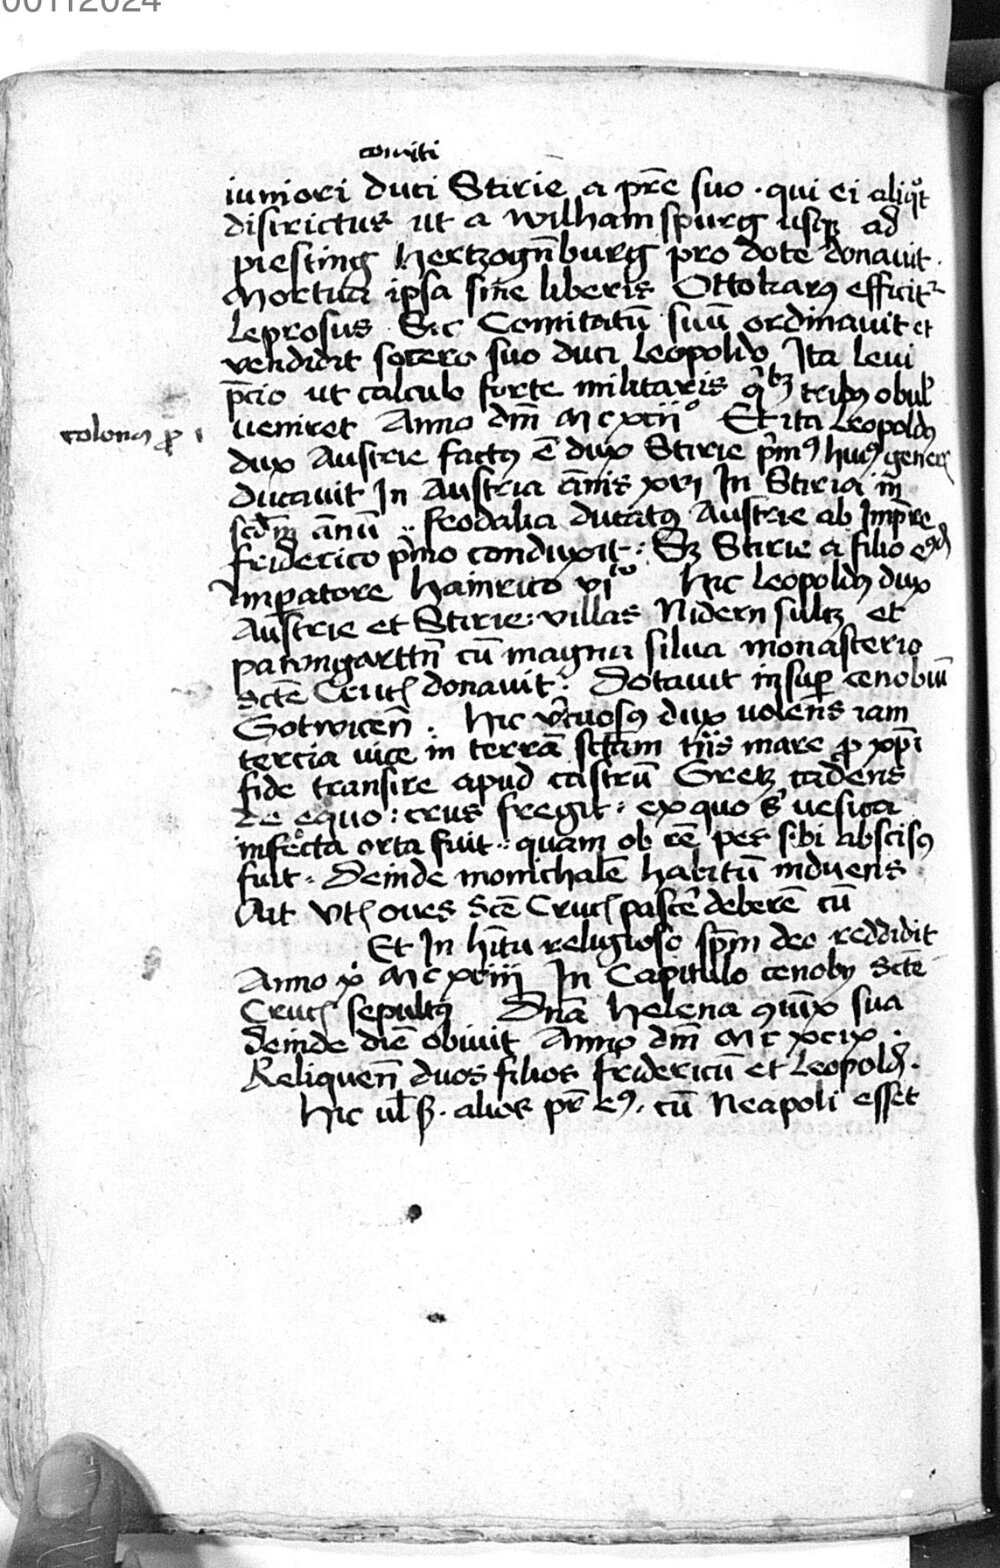 00112024
comiti
iuniori duci Stirie a pr̄e suo · qui ei aliq̊t
districtus ut a Wilhamspurg usq₃ ad
piesting Hertzogn̄burg pro dote donauit ·
Mortua ipsa sine liberis Ottokarꝯ efficit᷑
Leprosus Sic Comitatū suū ordinauit et
vendidit socero suo duci Leopoldo Ita leui
p̄cio ut calculo forte militaris tribꝯ obul᷑
ueniret Anno dm̄ Mcxcii° Et ita Leopoldꝯ
colonꝯ
dux Austrie factꝯ ē dux Stirie p᷑mꝯ huiꝯ gener᷑
ducauit In Austria ān̄is xvi In Stiria in̄
scd̄m ānū ·· feodalia ducatꝯ Austrie ab Imp̄re
friderico p᷑mo conduxit : S₃ Stirie a filio
Imp̄atore Hainrico vi^to Hic Leopoldꝯ dux
Austrie et Stirie : villas Nidern sultz et
pawmgarttn̄ cū magna silua monasterio
Sctē Cruc᷑ donauit : Dotauit insup̄ cenobiū
Gotwicen̄ · Hic v᷑tuosꝯ dux uolens iam
tercia uice in terrā sctam t̄n̄s mare ꝓ xp̄i
fide transire apud castrū Gretz cadens
de equo : crus fregit · ex quo uesica
infecta orta fuit · quam ob rē pes sibi abscisꝯ
fuit · Deinde monichalē habitū induens
Ait oues Sctē Cruc᷑ pasce᷑ deberē cū
Et In h̄itu religioso sp̄m deo reddidit
Anno x̊ Mcxciiij In Capitulo cenoby Sctē
Cruc᷑ sepultꝯ Dn̄a Helena ꝯiūx sua
deinde diē obiuit Anno dm̄ Mcxcix ·
Reliquen̄ duos filios fridericū et Leopold᷑ ·
Hic ul̄ · alior pr̄ eꝯ · cū Neapoli esset